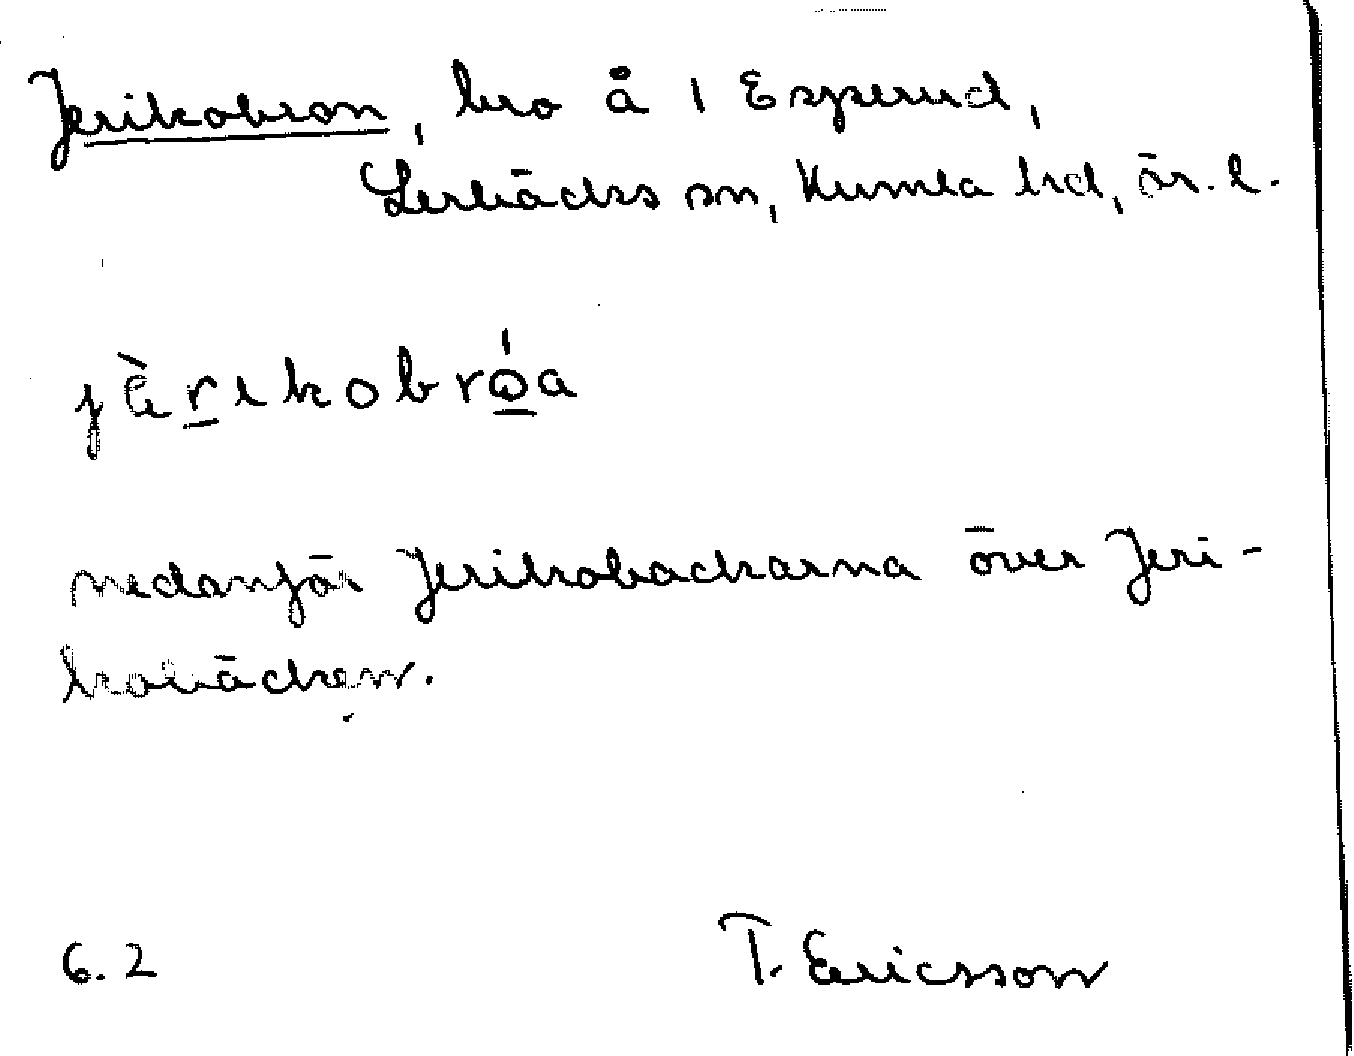 Jerikobron, bro å 1 Esperud,
Lerbäcks sn, Kumla hd, ör. l.
jèrıkobróa
nedanför Jerikobackarna över Jeri-
kobäcken.
6.2 T. Ericsson